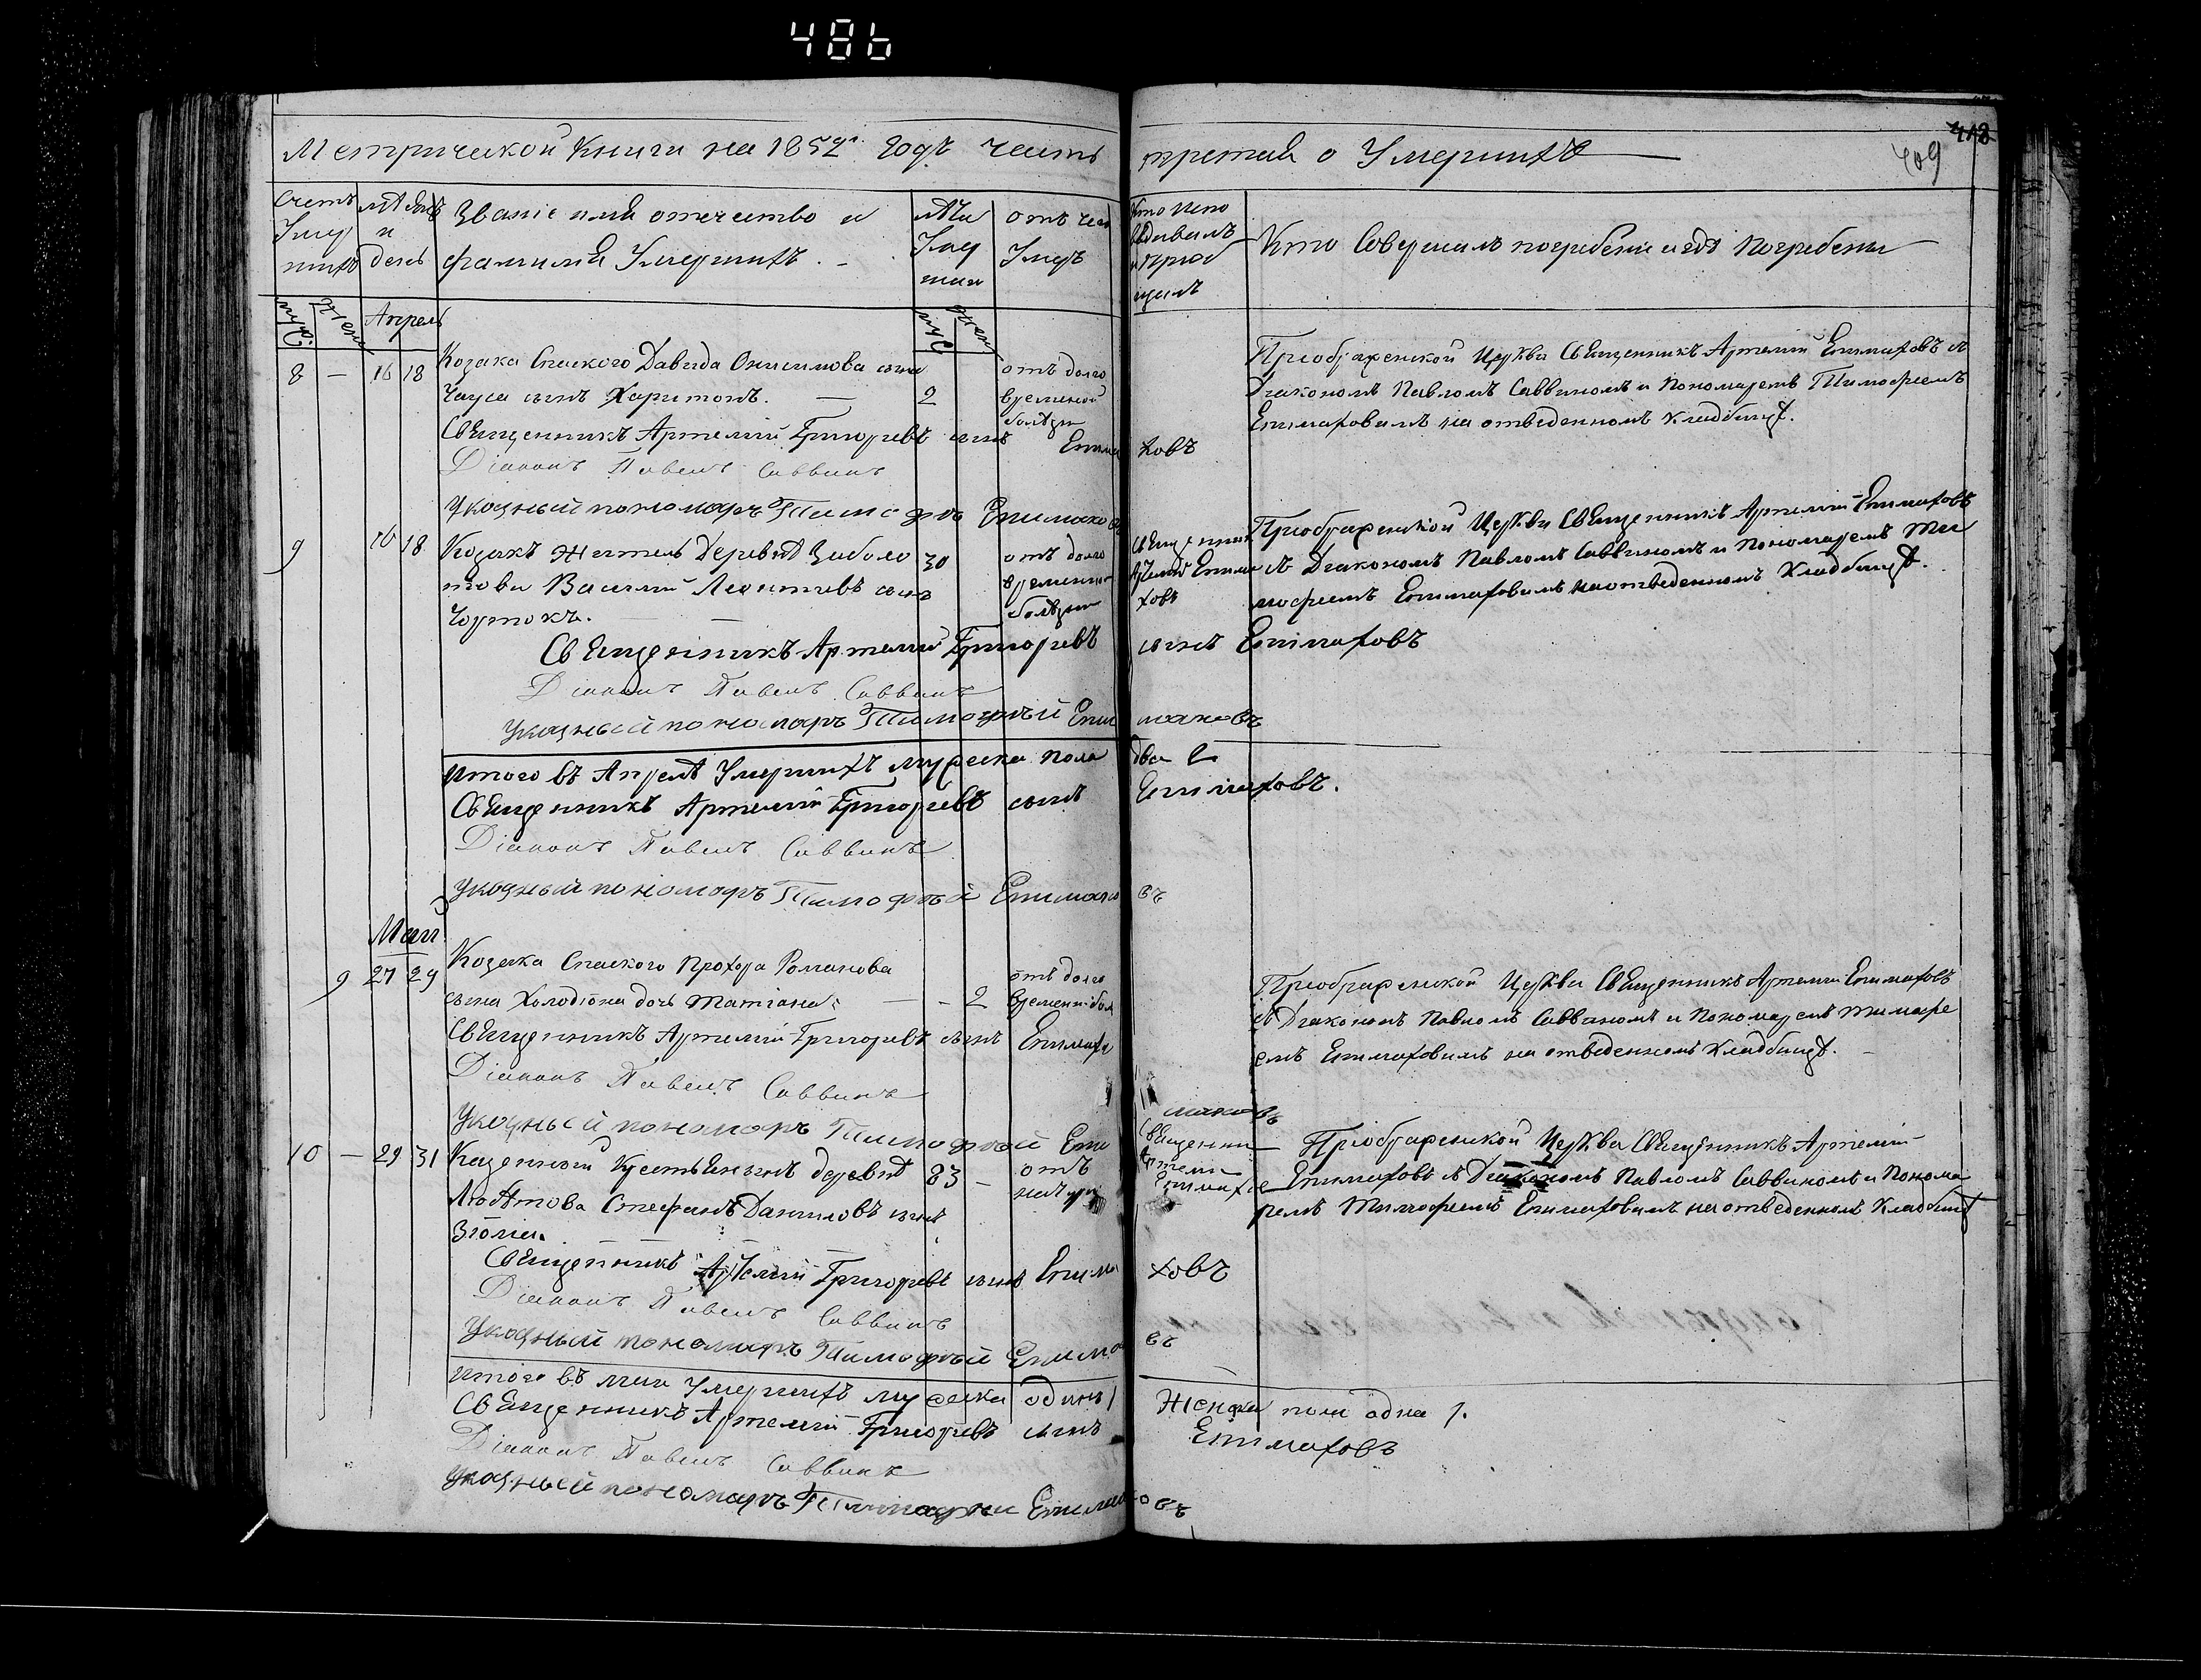 486
Метрической Книги на 1852й Годъ Часть третия о Умершихъ
409
Счетъ Умершихъ
мѣсяцъ и день
Званіе имя отечество и фамилія Умершихъ.
лѣта Умершихъ
отъ чего Умеръ
Кто исповѣдывалъ и приобщалъ
Кто Совершалъ погребеніе и гдѣ Погребены
муж
жен
Апрель
муж
жен
8 — 16 18 Козака Спаского Давида Онисимова сына
Чауса сынъ Харитонъ. — 2
отъ долго
временой
болѣзни
Приображенской Церкви Священникъ Артемій Епимаховъ съ
Диакономъ Павломъ Саввиномъ и Пономаремъ Тимофеемъ
Епимаховымъ на отведенномъ Кладбищѣ.
Священникъ Артемій Григорьевъ сынъ Епимаховъ
Діаконъ Павелъ Саввинъ
Указный пономарь Тимофѣй Епимаховъ
9 16 18 Козакъ житель Деревнѣ Заболо
това Василий Леонтиевъ сынъ
Чортокъ. —
30
отъ долго
временной
болѣзни
Священникъ
Артемий Епима
ховъ
Приображенской Церкви Священникъ Артемій Епимаховъ
съ Диакономъ Павломъ Саввиномъ и Пономаремъ Ти
мофеемъ Епимаховымъ на отведенномъ Кладбищѣ.
Священникъ Артемий Григорьевъ сынъ Епимаховъ
Діаконъ Павелъ Саввинъ
Указный пономарь Тимофѣй Епимаховъ
Итого въ Апрелѣ Умершихъ мужеска пола два 2
Священникъ Артемій Григорьевъ сынъ Епимаховъ.
Діаконъ Павелъ Саввинъ
Указный пономарь Тимофѣй Епимаховъ
Маий
9 27 29 Козака Спаского Прохора Романова
сына Холодіона дочь Татіана: — - 2
отъ долго
временн: бол
Приображенской Церкви Священникъ Артемий Епимаховъ
съ Диакономъ Павломъ Саввиномъ и Пономаремъ Тимофе
емъ Епимаховымъ на отведенномъ Кладбищѣ.
Священникъ Артемій Григорьевъ сынъ Епимахо
Діаконъ Павелъ Саввинъ
Указный пономарь Тимофѣй Епимаховъ
10 — 29 31 Казенной Крестьянинъ деревнѣ
Стефанъ Даниловъ сынъ
83 —
отъ
Священни
Артемий
Епимахов
Приображенской Церкви Священникъ Артемій
Епимаховъ съ Диакономъ Павломъ Саввиномъ и Понома
ремъ Тимофеемъ Епимаховымъ на отведенномъ Кладбищѣ
Священникъ Артемій Григорьевъ сынъ Епимаховъ
Діаконъ Павелъ Саввинъ
Указный пономарь Тимофѣй Епимаховъ
Итого въ маи Умершихъ мужеска одинъ 1 Женска пола одна 1.
Священникъ Артемій Григорьевъ сынъ Епимаховъ
Діаконъ Павелъ Саввинъ
Указный пономарь Тимофѣй Епимаховъ